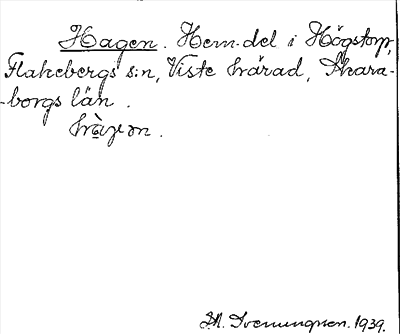 Hagen. Hem.del i Högstorp,
Flakebergs s:n, Viste härad, Skara-
-borgs län.
hàɡen.
M. Svenungsson. 1939.